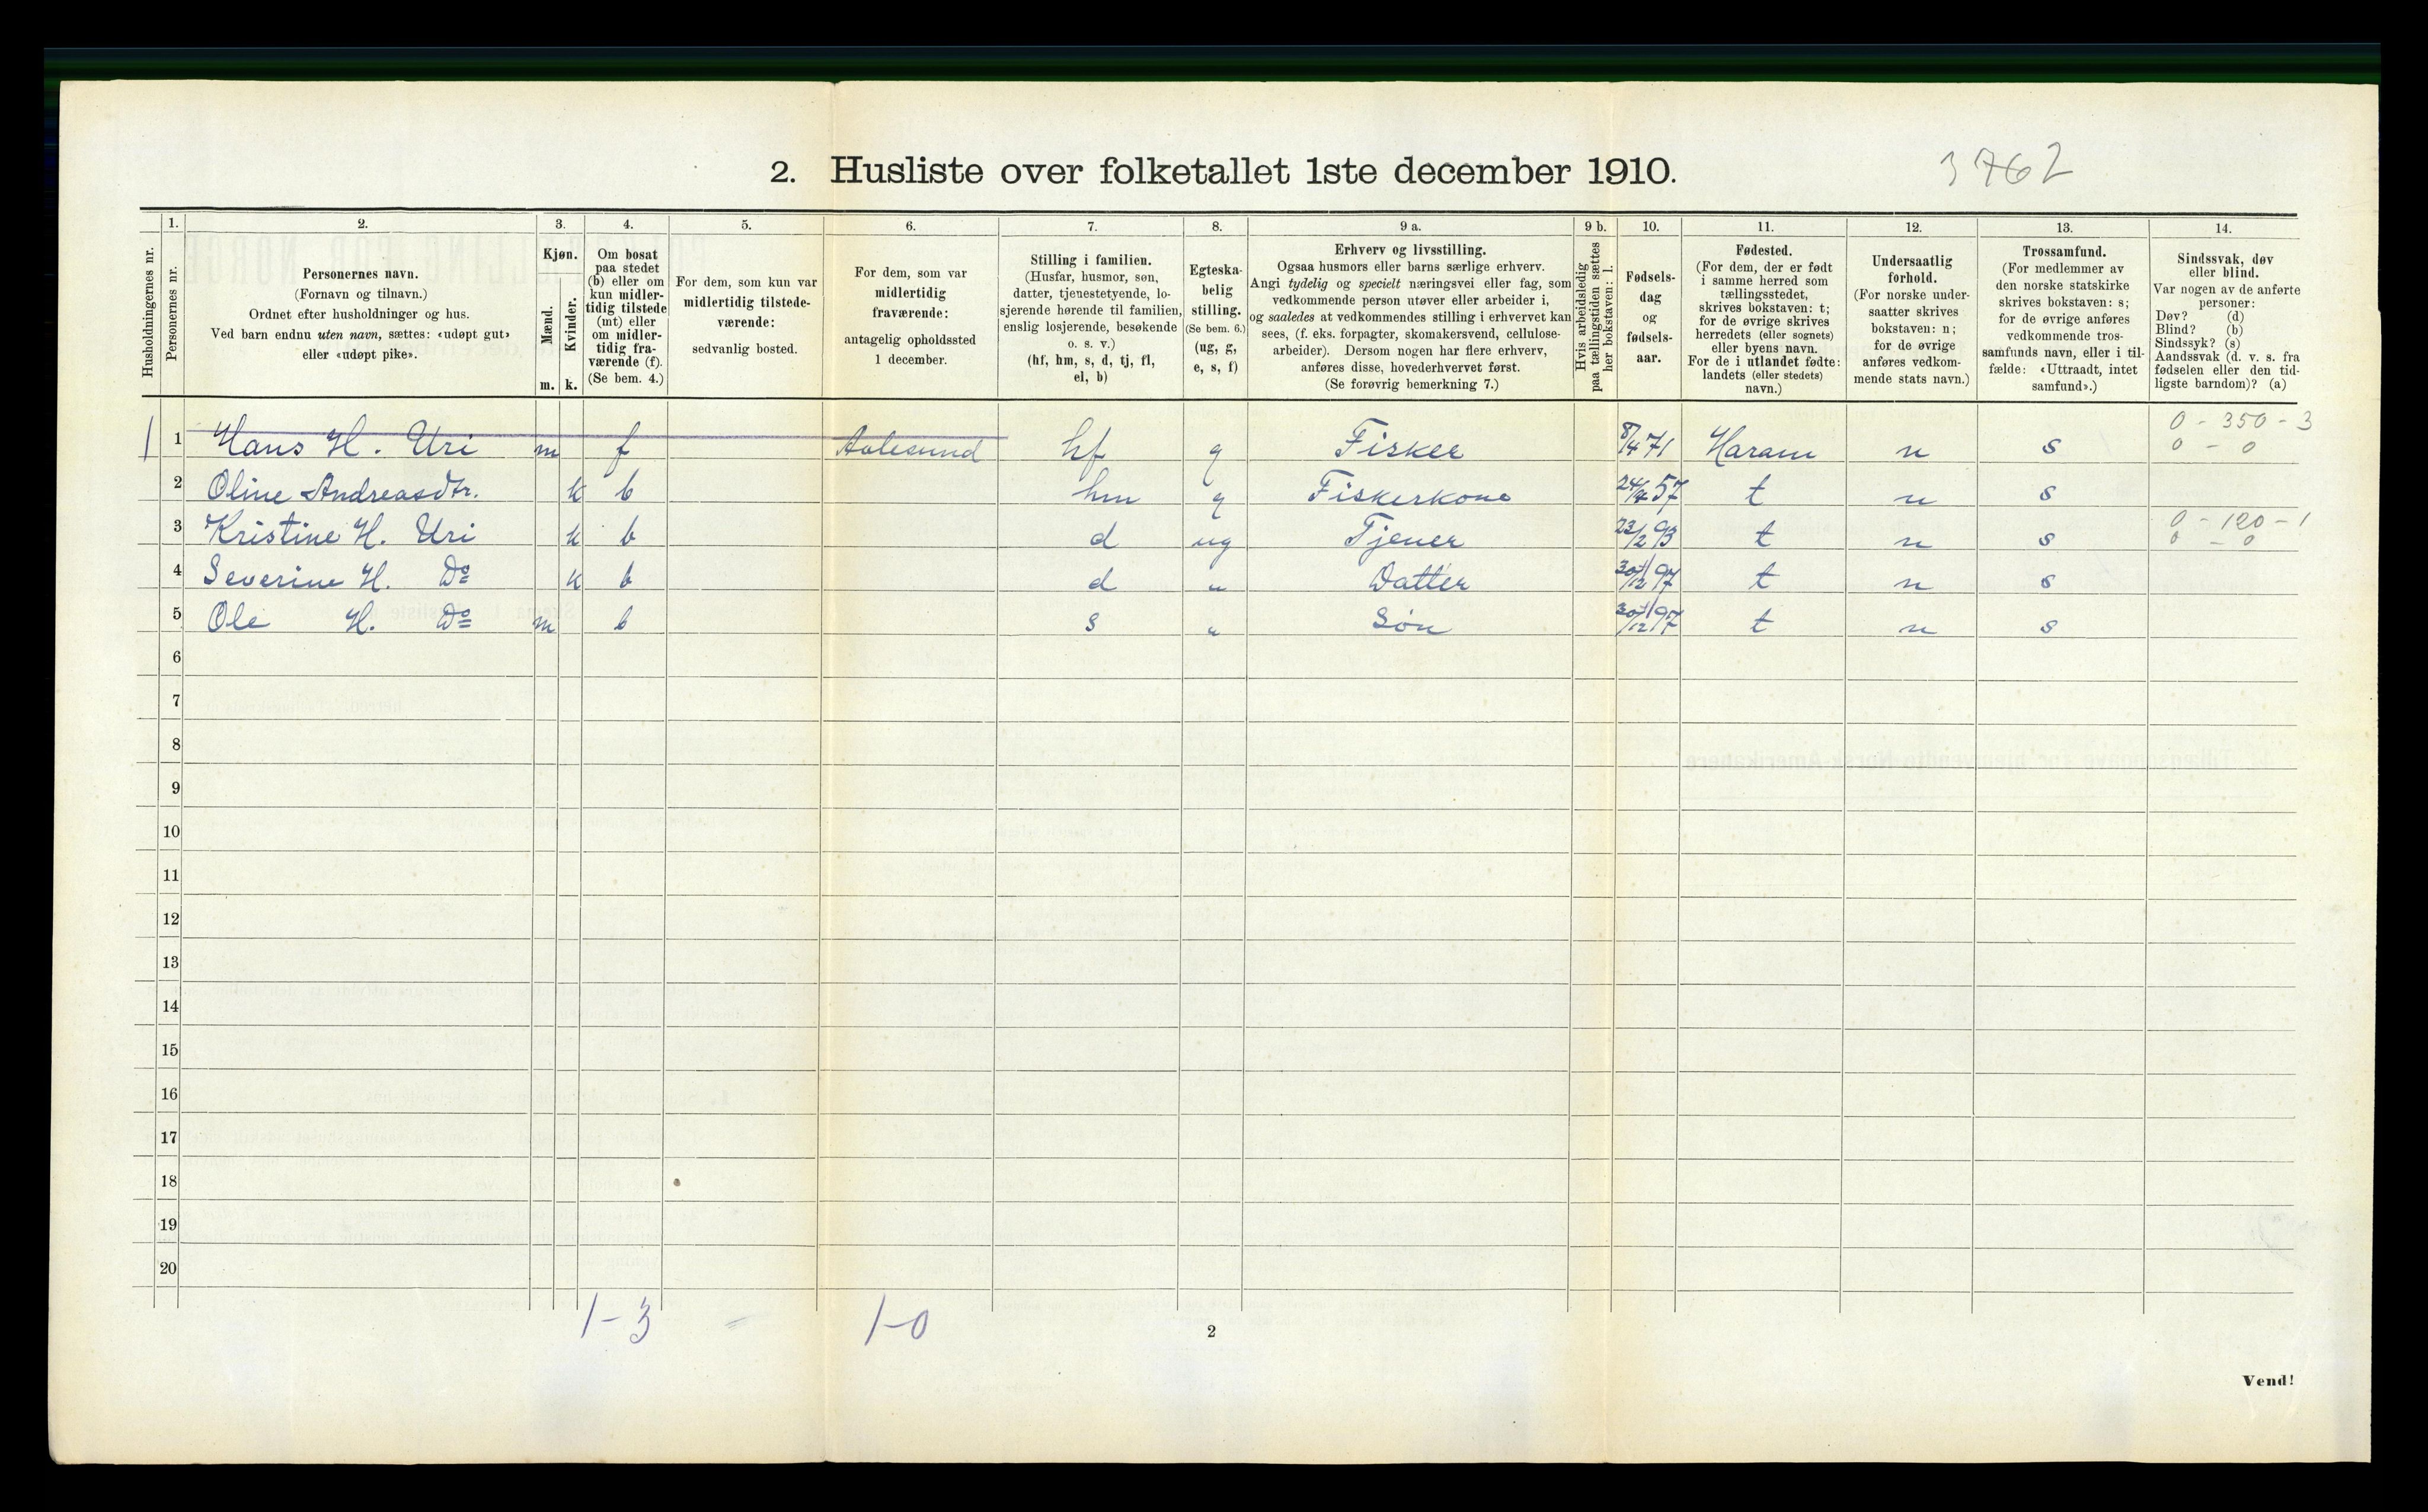 2. Husliste over folketallet 1ste december 1910.
3762
Husholdningernes nr.
1.
Personernes nr.
2.
Personernes navn.
(Fornavn og tilnavn.)
Ordnet efter husholdninger og hus.
Ved barn endnu uten navn, sættes: «udøpt gut»
eller «udøpt pike».
3.
Kjøn.
Mænd.
m.
Kvinder.
k.
4.
Om bosat
paa stedet
(b) eller om
kun midler-
tidig tilstede
(mt) eller
om midler-
tidig fra-
værende (f).
(Se bem. 4.)
5.
For dem, som kun var
midlertidig tilstede-
værende:
sedvanlig bosted.
6.
For dem, som var
midlertidig
fraværende:
antagelig opholdssted
1 december.
7.
Stilling i familien.
(Husfar, husmor, søn,
datter, tjenestetyende, lo-
sjerende hørende til familien,
enslig losjerende, besøkende
o. s. v.)
(hf, hm, s, d, tj, fl,
el, b)
8.
Egteska-
belig
stilling.
(Se bem. 6.)
(ug, g,
e, s, f)
9 a.
Erhverv og livsstilling.
Ogsaa husmors eller barns særlige erhverv.
Angi tydelig og specielt næringsvei eller fag, som
vedkommende person utøver eller arbeider i,
og saaledes at vedkommendes stilling i erhvervet kan
sees, (f. eks. forpagter, skomakersvend, cellulose-
arbeider). Dersom nogen har flere erhverv,
anføres disse, hovederhvervet først.
(Se forøvrig bemerkning 7.)
9 b.
Hvis arbeidsledig
paa tællingstiden sættes
her bokstaven: l.
10.
Fødsels-
dag
og
fødsels-
aar.
11.
Fødested.
(For dem, der er født
i samme herred som
tællingsstedet,
skrives bokstaven: t;
for de øvrige skrives
herredets (eller sognets)
eller byens navn.
For de i utlandet fødte:
landets (eller stedets)
navn.)
12.
Undersaatlig
forhold.
(For norske under-
saatter skrives
bokstaven: n;
for de øvrige
anføres vedkom-
mende stats navn.)
13.
Trossamfund.
(For medlemmer av
den norske statskirke
skrives bokstaven: s;
for de øvrige anføres
vedkommende tros-
samfunds navn, eller i til-
fælde: «Uttraadt, intet
samfund».)
14.
Sindssvak, døv
eller blind.
Var nogen av de anførte
personer:
Døv? (d)
Blind? (b)
Sindssyk? (s)
Aandssvak (d. v. s. fra
fødselen eller den tid-
ligste barndom)? (a)
0 - 350 - 3
1 1 Hans H. Uri m f Aalesund hf g Fisker 8/4 71 Haram n s 0 - 0
2 Oline Andreasdtr. k b hm g Fiskerkone 57 t n s
0 - 120 - 1
3 Kristine H. Uri k b d ug Tjener 23/2 93 t n s 0 - 0
4 Severine H. Do k b d " Datter 30/12 97 t n s
5 Ole H. Do m b s " Søn 30/12 97 t n s
6
7
8
9
10
11
12
13
14
15
16
17
18
19
20
1-3 - 1-0
2
Vend!